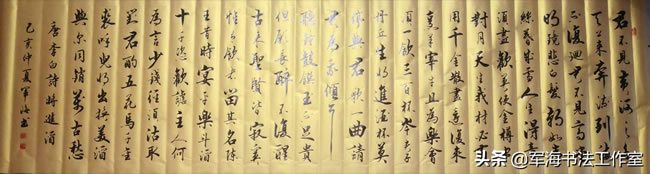 君不見黃河之
水天上來奔流到海
不復迴君不見高堂
明鏡悲白髮朝如青
絲暮成雪人生得意
須盡歡莫使金樽空
對月天生我材必有
用千金散盡還復來
烹羊宰牛且為樂會
須一飲三百杯岑夫子
丹丘生將進酒杯莫
停與君歌一曲請
君為我傾耳聽
鐘鼓饌玉不足貴
但願長醉不復醒
古來聖賢皆寂寞
惟有飲者留其名陳
王昔時宴平樂斗酒
十千恣歡謔主人何
為言少錢徑須沽取
對君酌五花馬千金
裘呼兒將出換美酒
與爾同銷萬古愁
唐李白詩將進酒
己亥仲夏軍海書
头条@军海书法工作室